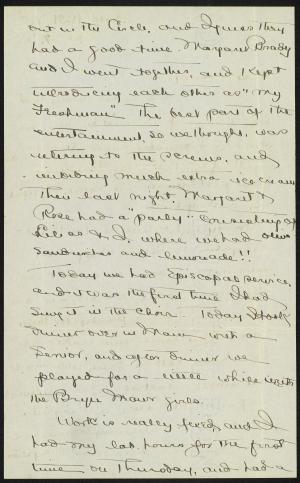 out in the Circle, and I guess they
had a good time. Margaret Brady
and I went together, and I kept
introducing each other as "my
Freshman" The best part of the
entertainment, so we thought, was
retiring to the screens, and
imbibing much extra ice cream
Then last night, Margaret &
Rose had a "party" consisting of
& I, where we had
sandwiches and lemonade!!
Today we had Episcopal service,
and it was the first time I had
sung it in the choir Today I took
dinner over in Main with a
Senior, and after dinner we
played for a little while with
the Bryn Mawr girls.
Work is really fixed, and I
had my lab hours for the first
time on Thursday, and had a